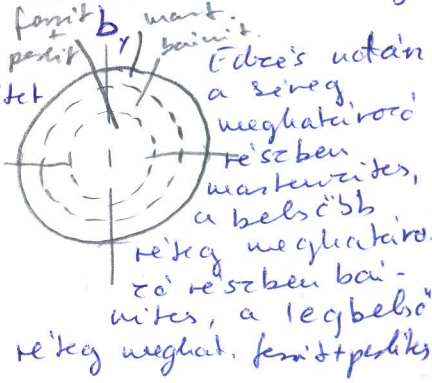 ferrit
+
perlit
b
y
mart.
bainit.
tet
Edzés után
a kéreg
meghatározó
részben
martenzites,
a belsőbb
réteg meghatáro-
zó részben bai-
nites, a legbelső
réteg meghat. ferrit+perlites